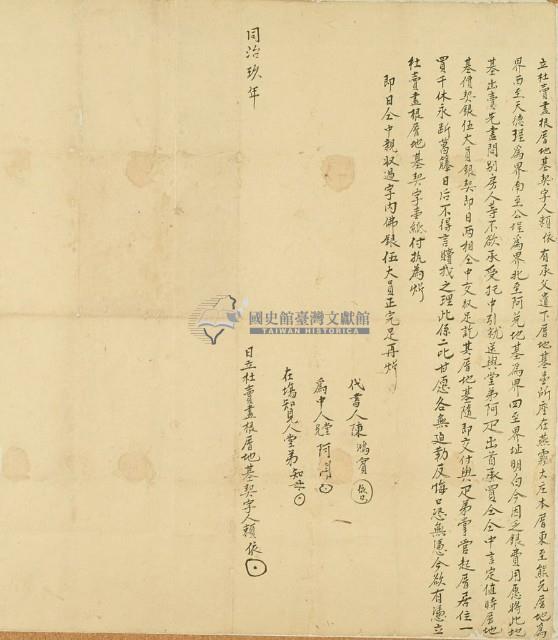 立杜賣盡根厝地基契字人賴依有承父遺下厝地基壹所座在燕霧大庄本厝東至熊光厝地為
界西至天德埕為界南至公埕為界北至阿兌地基為界四至界址明白今因乏銀費用愿將此地
基出賣先盡問別房人等不欲承受托中引就送與堂弟阿疋出首承買仝中言定值時厝地
基價契銀伍大員銀契即日兩相仝中交收足訖其厝地基隨即交付與疋弟掌管起厝居住一
買千休永斷葛籐日后不得言贖找之理此係二比甘愿各無迫勒反悔口恐無憑今欲有憑立
杜賣盡根厝地基契字壹紙付执為炤
即日仝中親收過字內佛銀伍大員正完足再炤
代書人陳鴻賓
為中人堂兄阿
在塲知見人堂弟知母
同治玖年
日立杜賣盡根厝地基契字人賴依
國史館臺灣文獻館
TAIWAN HISTORICA